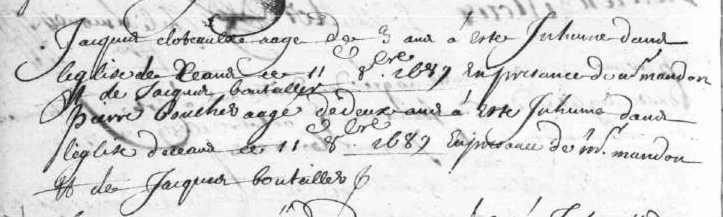 Jacques aagé de 3 ans a este Inhumé dans
leglise de ce 11 8bre 1687 En presance de mr mandon
# de Jacques boutiller
pierre boucher aagé dedeux ans a este Inhumé dans
leglise ce 11 8bre 1687 En presance de mr mandon
# de Jacques boutiller